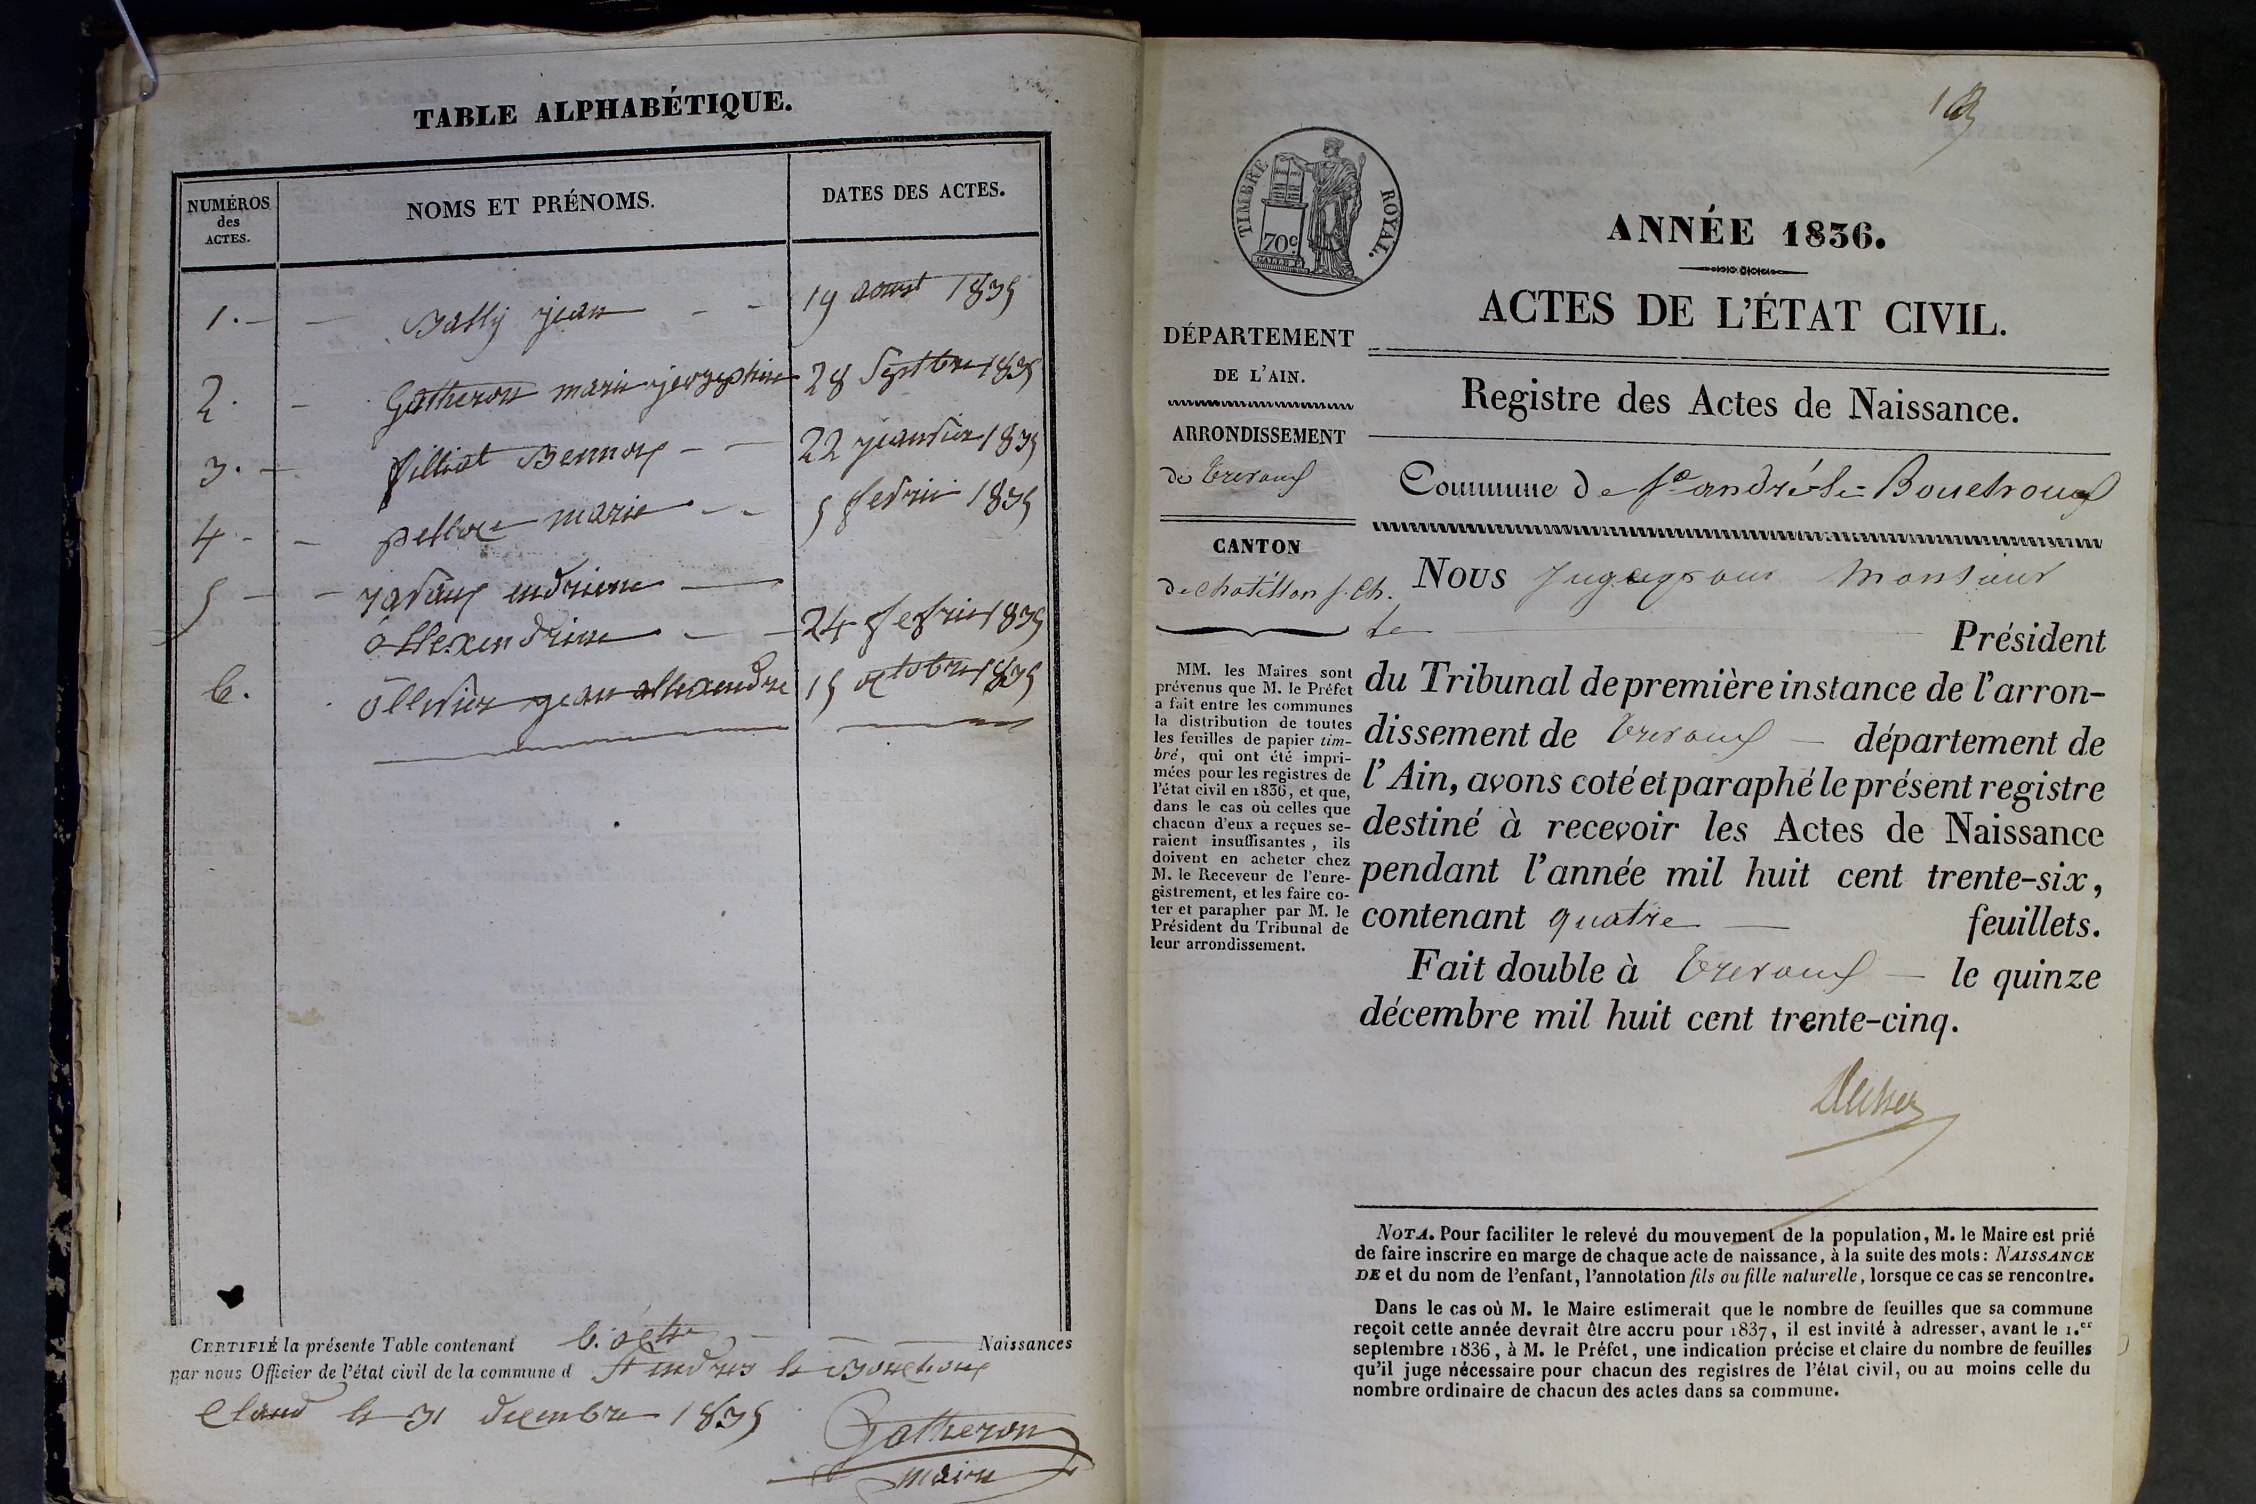 TABLE ALPHABÉTIQUE.
NUMÉROS
des
ACTES.
NOMS ET PRÉNOMS.
DATES DES ACTES.
1. Bally jean 19 aoust 1835
2. Gatheron marie josephine 28 Septbre 1835
3. filliat Bennoy 22 janvier 1835
4 marie 5 fevrie 1835
5
allexendrine 24 fefrie 1835
6. ollivier jean allexendre 15 octobre 1835
CERTIFIÉ la présente Table contenant 6. acte Naissances
par nous Officier de l'état civil de la commune d St andres le Bouchoux
le 31 decembre 1835
Gatheron
maire
TIMBRE ROYAL.
70c
ANNÉE 1836.
ACTES DE L'ÉTAT CIVIL.
DÉPARTEMENT
DE L'AIN.
ARRONDISSEMENT
de Trevoux
CANTON
de Chatillon s. Ch.
MM. les Maires sont
prévenus que M. le Préfet
a fait entre les communes
la distribution de toutes
les feuilles de papier tim-
bré, qui ont été impri-
mées pour les registres de
l'état civil en 1836, et que,
dans le cas où celles que
chacun d'eux a reçues se-
raient insuffisantes, ils
doivent en acheter chez
M. le Receveur de l'enre-
gistrement, et les faire co-
ter et parapher par M. le
Président du Tribunal de
leur arrondissement.
Registre des Actes de Naissance.
Commune de St andré-le-Bouchoux
Nous Juge pour Monsieur
le Président
du Tribunal de première instance de l'arron-
dissement de Trevoux département de
l'Ain, avons coté et paraphé le présent registre
destiné à recevoir les Actes de Naissance
pendant l'année mil huit cent trente-six,
contenant quatre feuillets.
Fait double à Trevoux le quinze
décembre mil huit cent trente-cinq.
NOTA. Pour faciliter le relevé du mouvement de la population, M. le Maire est prié
de faire inscrire en marge de chaque acte de naissance, à la suite des mots: NAISSANCE
DE et du nom de l'enfant, l'annotation fils ou fille naturelle, lorsque ce cas se rencontre.
Dans le cas où M. le Maire estimerait que le nombre de feuilles que sa commune
reçoit cette année devrait être accru pour 1837, il est invité à adresser, avant le 1.er
septembre 1836, à M. le Préfet, une indication précise et claire du nombre de feuilles
qu'il juge nécessaire pour chacun des registres de l'état civil, ou au moins celle du
nombre ordinaire de chacun des actes dans sa commune.